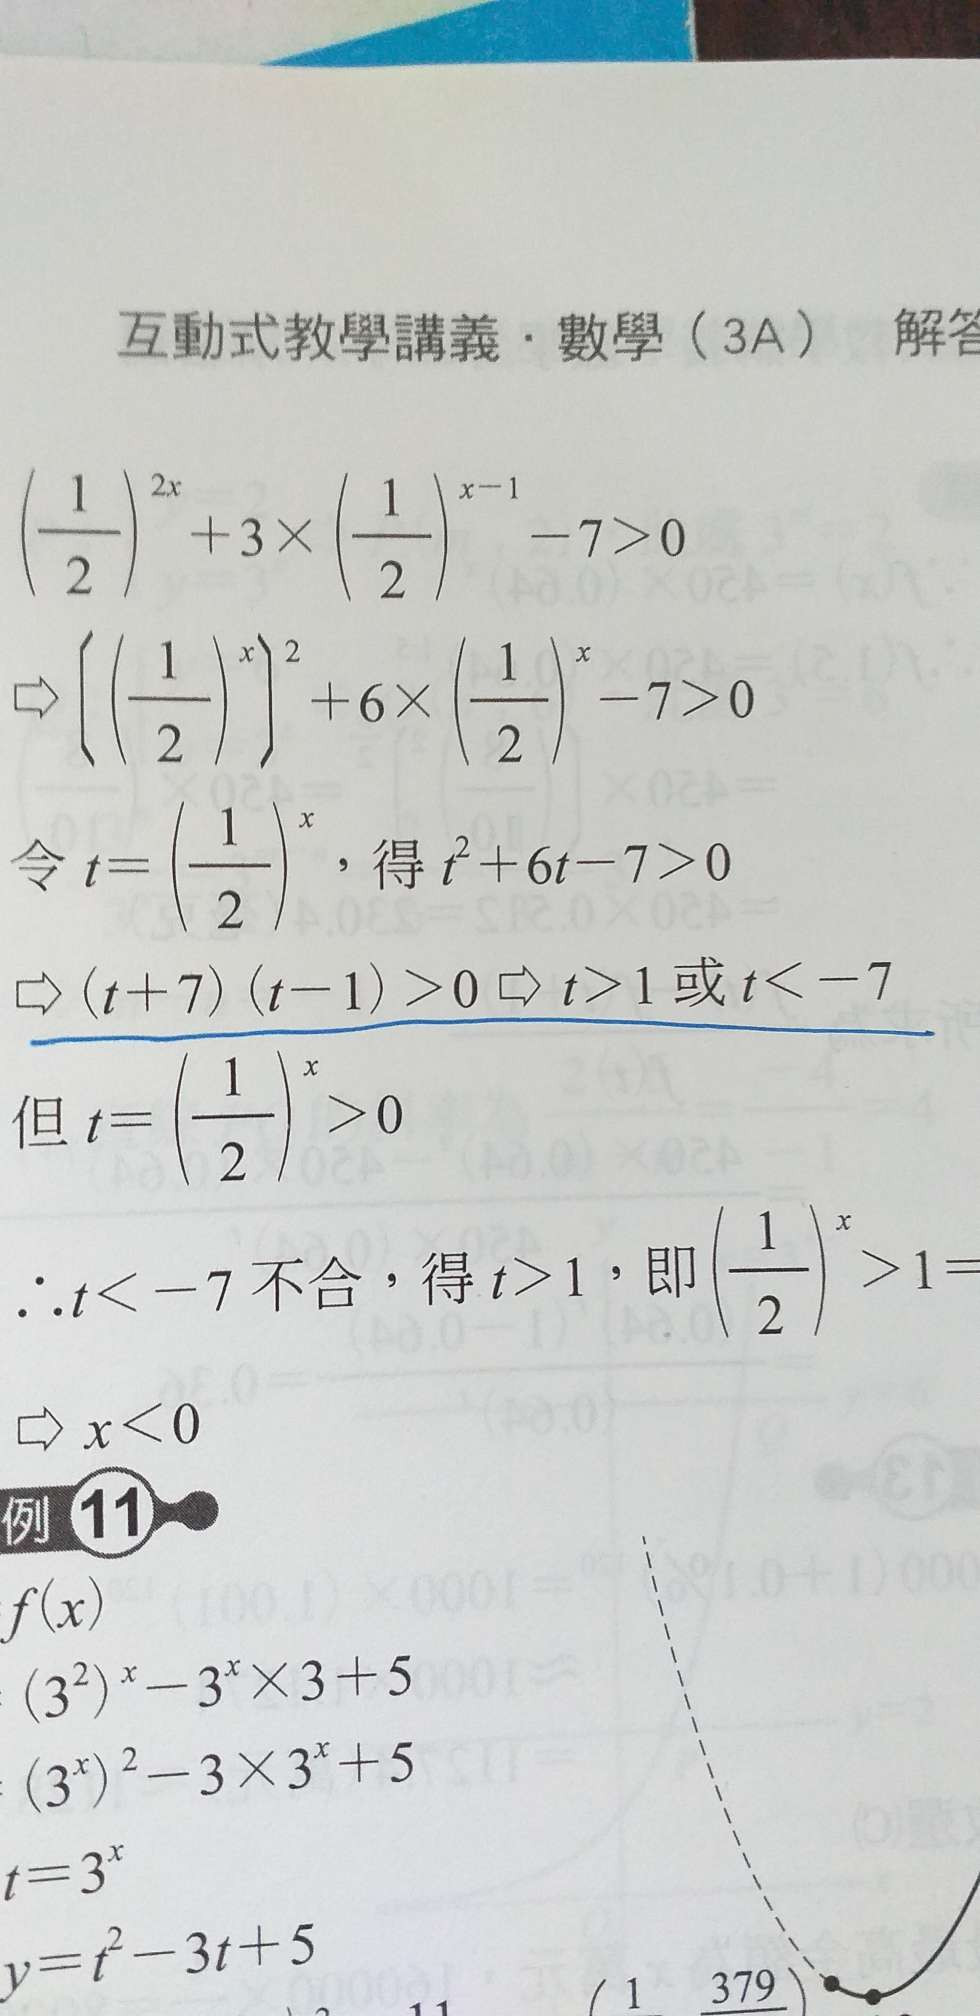 互動式教學講義・數學（3A） 解答
(1/2)^{2x}+3×(1/2)^{x−1}−7>0
⇨[(1/2)^x]^2+6×(1/2)^x−7>0
令 t=(1/2)^x，得 t^2+6t−7>0
⇨(t+7)(t−1)>0⇨t>1 或 t<−7
但 t=(1/2)^x>0
∴t<−7 不合，得 t>1，即(1/2)^x>1=
⇨x<0
例 11
f(x)
=(3^2)^x−3^x×3+5
=(3^x)^2−3×3^x+5
t=3^x
y=t^2−3t+5